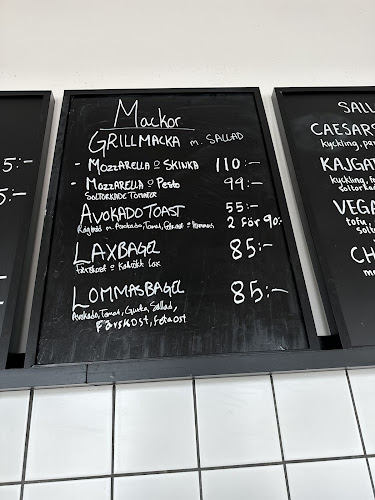 5:-
5:-
Mackor
GRILLMACKA m. SALLAD
- MOZZARELLA o SKINKA 110:-
- MOZZARELLA o Pesto 99:-
SOLTORKADE TOMATER
AVOKADOTOAST 55:-
Rågbröd m. Avokado, Tomat, o Hummus 2 för 90:-
LAXBAGEL 85:-
färskost o Kallrökt Lax
LOMMABAGEL 85:-
Avokado, Tomat, Gurka, Sallad,
FÄRSKOST, fetaost
SALL
CAESARS
kyckling, par
KAJGAT
kyckling, f
soltork
VEGA
tofu,
solto
CH